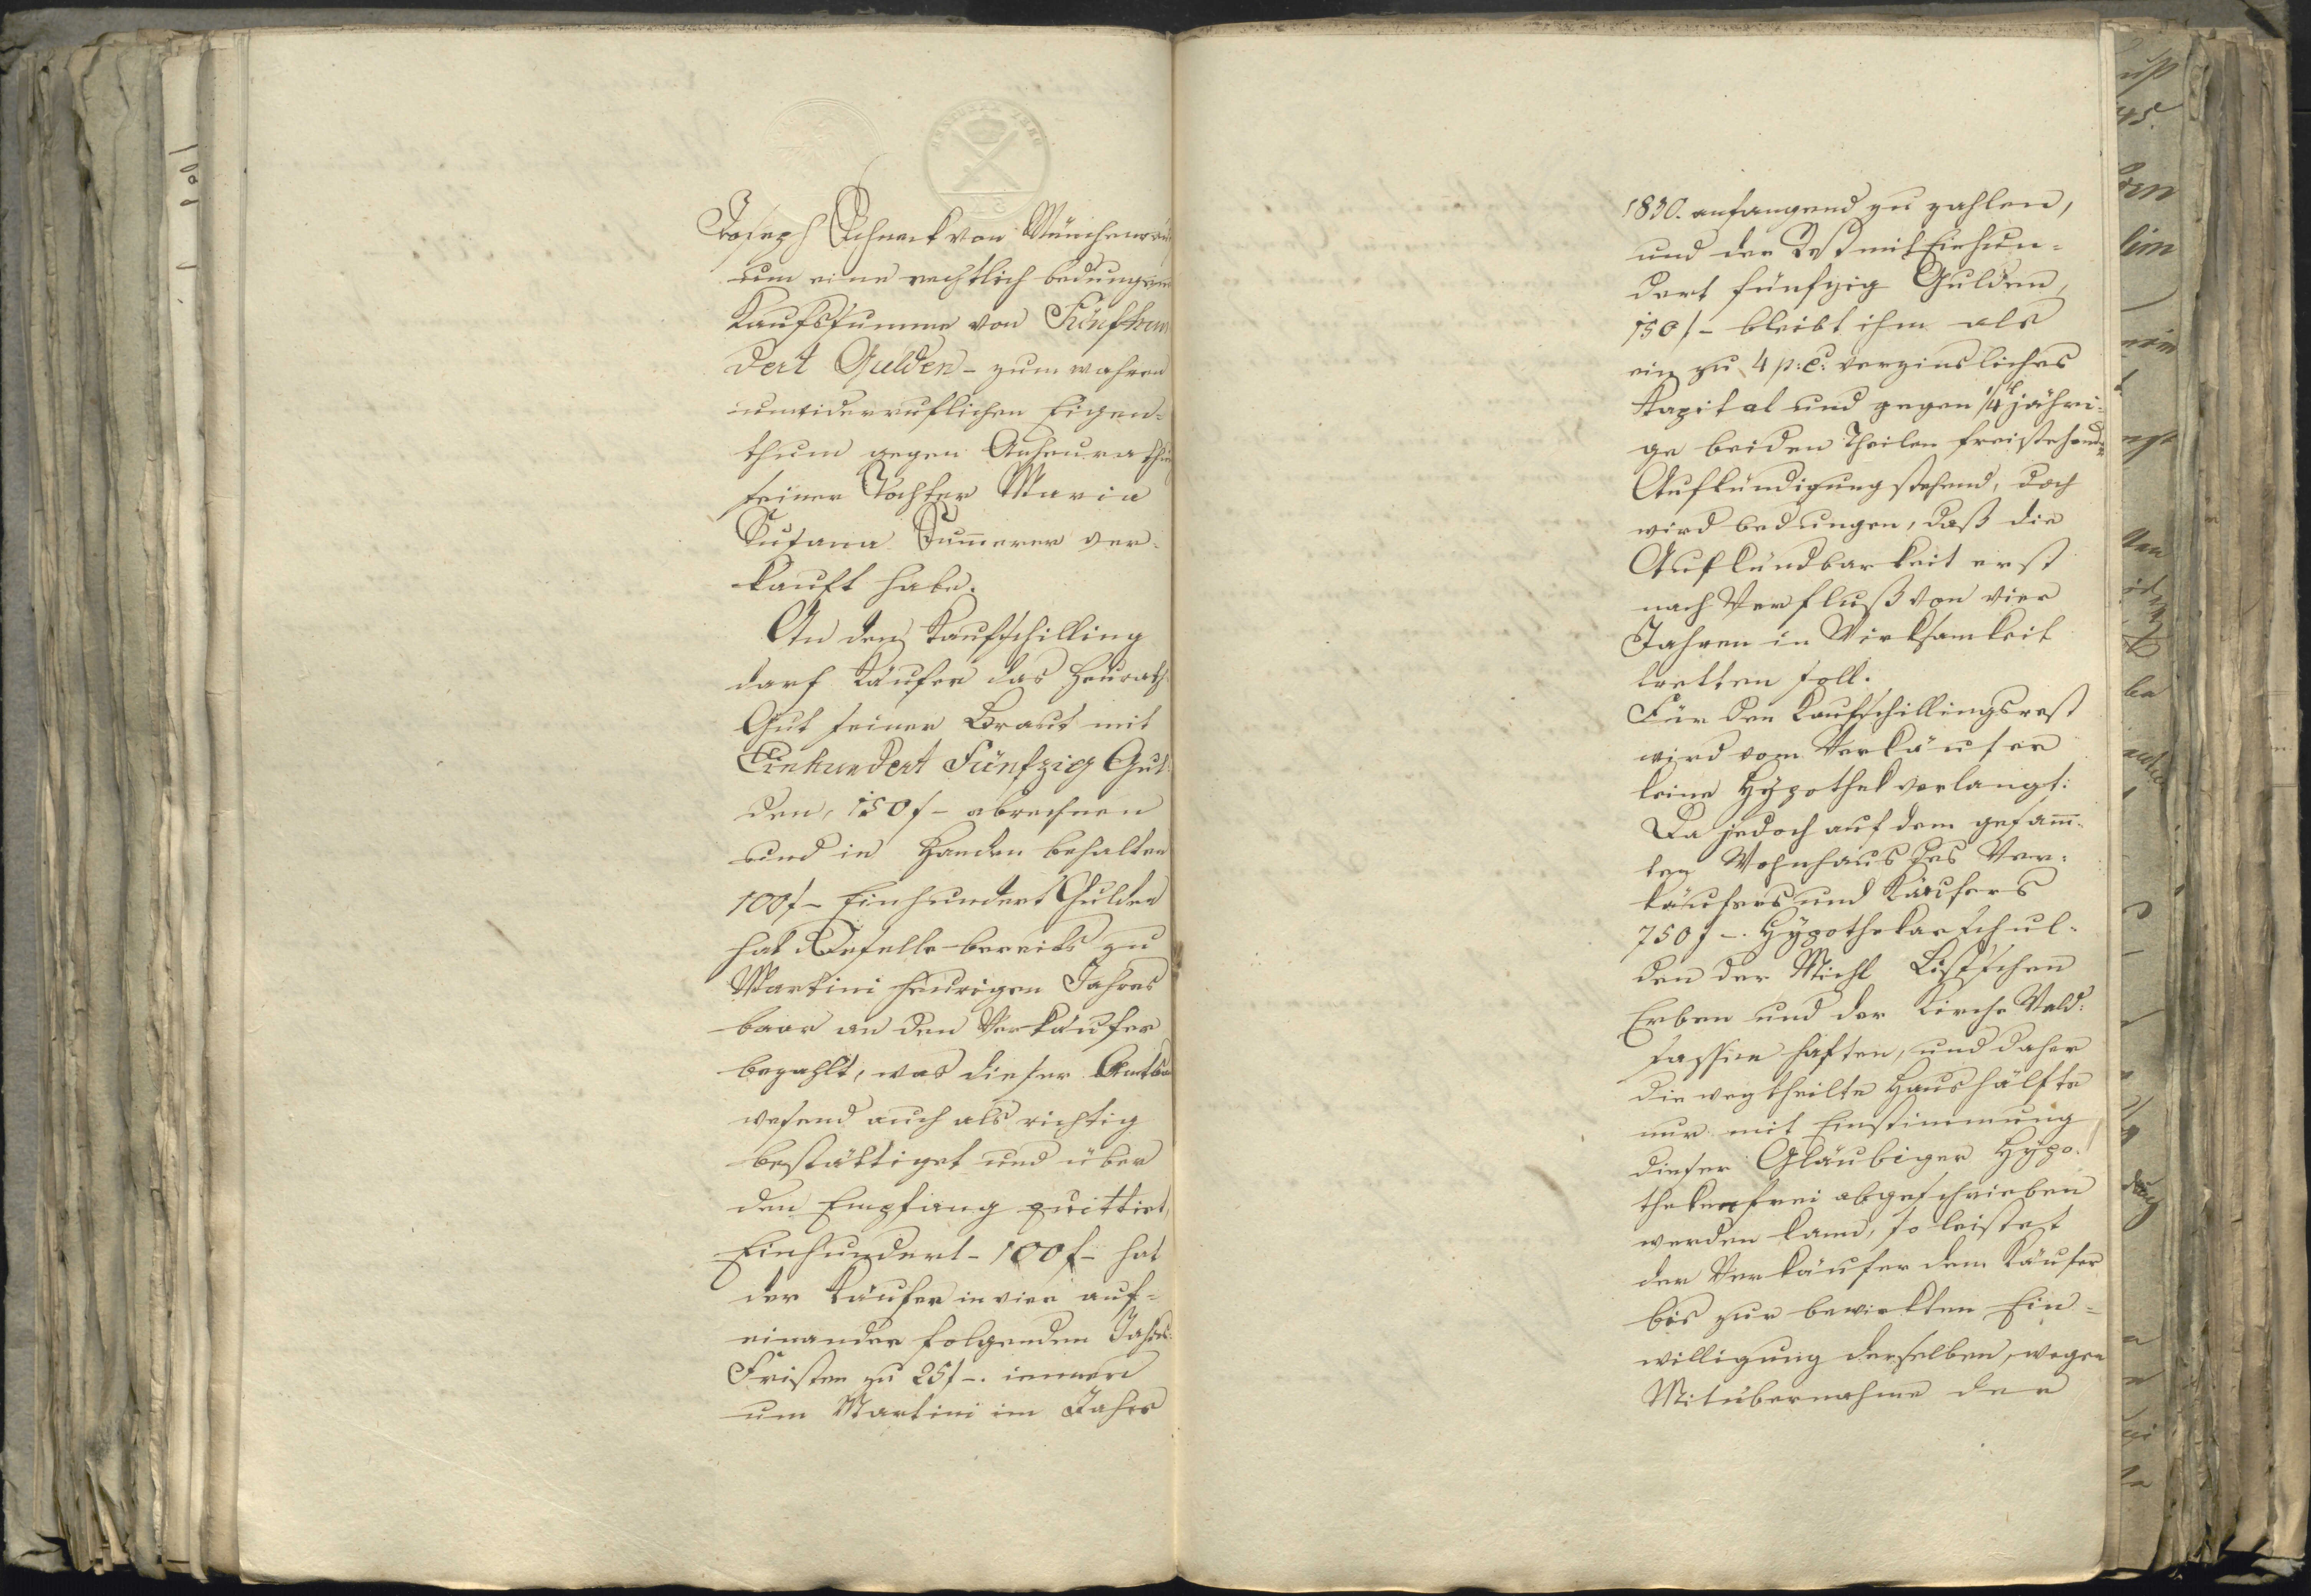 Joseph Schneck von Münchenreu
um eine rechtlich bedungene
Kaufssumme von Fünfhun
dert Gulden – zum wahren
unwiderruflichen Eigen=
thum gegen Anheurathung
seiner Tochter Maria
Susana Sum̄erer ver=
kauft habe.
An den Kaufschilling
darf Käufer das Heurath
Gut seiner Braut mit
Einhundert Fünfzig Gul=
den, 150 f – abrechnen
und in Handen behalten
100 f – Einhundert Gulden
hat Derselbe bereits zu
Martini heurigen Jahres
baar an den Verkäufer
bezahlt, was dieser Amtsan
wesend auch als richtig
bestättiget und über
den Empfang quittirt,
Einhundert – 100 f – hat
der Käufer in vier auf=
einander folgenden Jahres=
Fristen zu 25 f –. immer
um Martini im Jahre
1830. anfangend zu zahlen,
und der Rest mit Einhun=
dert fünfzig Gulden,
150 f – bleibt ihm als
ein zu 4 p: C: verzinsliches
Kapital und gegen 1/4 jähri=
ge beiden Theilen freistehende
Aufkündigung stehend, doch
wird bedungen, daß die
Aufkündbarkeit erst
nach Verfluß von vier
Jahren in Wirksamkeit
tretten soll.
Für den Kaufschillingsrest
wird vom Verkäufer
keine Hypothek verlangt:
Da jedoch auf dem gesam̄=
ten Wohnhaus des Ver=
käufers und Käufers
750 f –. Hypothekarschul=
den der Michl Listschen
Erben und der Kirche Wald=
sassen haften, und daher
die wegtheilte Haushälfte
nur mit Einstimmung
dieser Gläubiger Hypo=
thekenfrei abgeschrieben
werden kann, so leistet
der Verkäufer dem Käufer
bis zur bewirkten Ein=
willigung derselben, wegen
Mitübernahme der